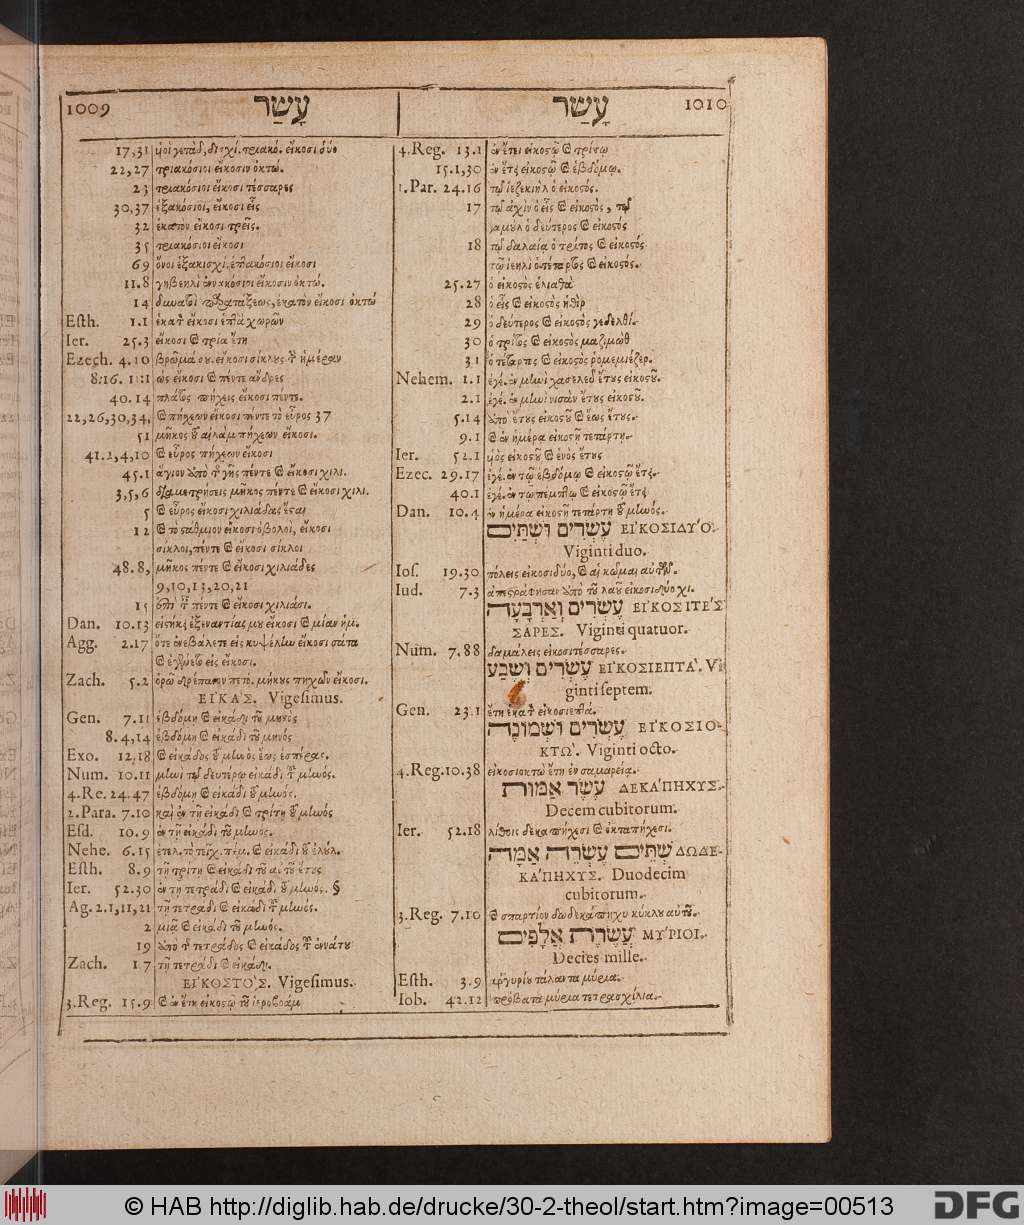 1009 עָשַׂר
17,31
22,27 τριακόσιοι εἴκοσιν ὀκτώ.
23 τριακόσιοι εἴκοσι τέσσαρες
30,37 ἑξακόσιοι, εἴκοσι εἷς
32 ἑκατὸν εἴκοσι τρεῖς.
35 τριακόσιοι εἴκοσι
69 ὄνοι ἑξακισχί. ἑπτακόσιοι εἴκοσι
11.8 εἴκοσιν ὀκτώ.
14 ἑκατὸν εἴκοσι ὀκτώ
Esth. 1.1 ἑκατὸ εἴκοσι ἑπτὰ χωρῶν
Ier. 25.3 εἴκοσι καὶ τρία ἔτη
Ezech. 4.10 βρῶμά σου. εἴκοσι σίκλους τὴν ἡμέραν
8:16. 11:1 ὡς εἴκοσι καὶ πέντε ἄνδρες
40.14 πλάτος πήχεις εἴκοσι πέντε.
22,26,30,34, καὶ πήχεων εἴκοσι πέντε τὸ εὖρος 37
51 μῆκος τοῦ αἰλὰμ πήχεων εἴκοσι.
41.2,4,10 καὶ εὖρος πήχεων εἴκοσι
45.1 ἅγιον ἀπὸ τῆς γῆς πέντε καὶ εἴκοσι χιλι.
3,5,6 διαμετρήσεις μῆκος πέντε καὶ εἴκοσι χιλι.
5 καὶ εὖρος εἴκοσι χιλιάδας ἔσται
12 καὶ τὸ στάθμιον εἴκοσι ὀβολοί, εἴκοσι
σίκλοι, πέντε καὶ εἴκοσι σίκλοι
48.8, μῆκος πέντε καὶ εἴκοσι χιλιάδες
9,10,13,20,21
15 ἐπὶ ταῖς πέντε καὶ εἴκοσι χιλιάσι.
Dan. 10.13 εἱστήκει ἐξεναντίας μου εἴκοσι καὶ μίαν ἡμ.
Agg. 2.17 ὅτε ἐνεβάλετε εἰς κυψέλην εἴκοσι σάτα
καὶ ἐγένετο εἰς εἴκοσι.
Zach. 5.2 ὁρῶ δρέπανον πετό. μήκους πηχῶν εἴκοσι.
ΕΙ'ΚΑ'Σ. Vigesimus.
Gen. 7.11 ἑβδόμῃ καὶ εἰκάδι τοῦ μηνὸς
8.4,14 ἑβδόμῃ καὶ εἰκάδι τοῦ μηνὸς
Exo. 12.18 καὶ εἰκάδος τοῦ μηνὸς ἕως ἑσπέρας.
Num. 10.11 μηνὶ τῷ δευτέρῳ εἰκάδι τοῦ μηνός.
4.Re. 24.47 ἑβδόμῃ καὶ εἰκάδι τοῦ μηνός.
2.Para. 7.10 καὶ ἐν τῇ εἰκάδι καὶ τρίτῃ τοῦ μηνός
Esd. 10.9 ἐν τῇ εἰκάδι τοῦ μηνός.
Nehe. 6.15 ἐτελ. τὸ τεῖχ. πέμ. καὶ εἰκάδι τοῦ ἐλούλ.
Esth. 8.9 τῇ τρίτῃ καὶ εἰκάδι τοῦ αὐτοῦ ἔτους
Ier. 52.30 ἐν τῇ τετράδι καὶ εἰκάδι τοῦ μηνός. §
Ag. 2.1,11,21 τῇ τετράδι καὶ εἰκάδι τοῦ μηνός.
2 μιᾷ καὶ εἰκάδι τοῦ μηνός.
19 ἀπὸ τῆς τετράδος καὶ εἰκάδος τοῦ ἐννάτου
Zach. 1.7 τῇ τετράδι καὶ εἰκάδι.
ΕΙ'ΚΟΣΤΟ'Σ. Vigesimus.
3.Reg. 15.9 καὶ ἐν ἔτει εἰκοστῷ τοῦ ἱεροβοὰμ
עָשַׂר 1010
4.Reg. 13.1 ἐν ἔτει εἰκοστῷ καὶ τρίτῳ
15.1,30 ἐν ἔτει εἰκοστῷ καὶ ἑβδόμῳ.
1.Par. 24.16 τῷ ἰεζεκιὴλ ὁ εἰκοστός.
17 τῷ ἀχὶν ὁ εἷς καὶ εἰκοστὸς, τῷ
γαμοὺλ ὁ δεύτερος καὶ εἰκοστὸς
18 τῷ δαλαίᾳ ὁ τρίτος καὶ εἰκοστός
ὁ τέταρτος καὶ εἰκοστός.
25.27 ὁ εἰκοστὸς ἐλιαθὰ
28 ὁ εἷς καὶ εἰκοστὸς ἠθὶρ
29 ὁ δεύτερος καὶ εἰκοστὸς γεδελθί.
30 ὁ τρίτος καὶ εἰκοστὸς μαζιμὼθ
31 ὁ τέταρτος καὶ εἰκοστὸς ῥομεμιέζερ.
Nehem. 1.1 ἐγέ. ἐν μηνὶ χασελεῦ ἔτους εἰκοστοῦ.
2.1 ἐγέ. ἐν μηνὶ νισὰν ἔτους εἰκοστοῦ.
5.14 ἀπὸ ἔτους εἰκοστοῦ καὶ ἕως ἔτους.
9.1 καὶ ἐν ἡμέρᾳ εἰκοστῇ τετάρτῃ.
Ier. 52.1 εἰκοστοῦ καὶ ἑνὸς ἔτους
Ezec. 29.17 ἐγέ. ἐν τῷ ἑβδόμῳ καὶ εἰκοστῷ ἔτει.
40.1 ἐγέ. ἐν τῷ πέμπτῳ καὶ εἰκοστῷ ἔτει
Dan. 10.4 ἐν ἡμέρᾳ εἰκοστῇ τετάρτῃ τοῦ μηνός.
עֶשְׂרִים וּשְׁתַּיִם ΕΙ'ΚΟΣΙΔΥ'Ο.
Viginti duo.
Ios. 19.30 πόλεις εἰκοσιδύο, καὶ αἱ κῶμαι αὐτῶν.
Iud. 7.3 ἀπεστράφησαν ἀπὸ τοῦ λαοῦ εἰκοσιδύο χι.
עֶשְׂרִים וְאַרְבָּעָה ΕΙ'ΚΟΣΙΤΕ'Σ
ΣΑΡΕΣ. Viginti quatuor.
Num. 7.88 δαμάλεις εἰκοσιτέσσαρες.
עֶשְׂרִים וְשֶׁבַע ΕΙ'ΚΟΣΙΕΠΤΑ'. Vi
ginti septem.
Gen. 23.1 ἔτη ἑκατὸν εἰκοσιεπτά.
עֶשְׂרִים וּשְׁמוֹנֶה ΕΙ'ΚΟΣΙΟ-
ΚΤΩ'. Viginti octo.
4.Reg. 10.38 εἰκοσιοκτὼ ἔτη ἐν σαμαρείᾳ.
עֶשֶׂר אַמּוֹת ΔΕΚΑ'ΠΗΧΥΣ.
Decem cubitorum.
Ier. 52.18 λίθοις δεκαπήχεσι καὶ ὀκταπήχεσι.
שְׁתֵּים עֶשְׂרֵה אַמָּה ΔΩΔΕ-
ΚΑ'ΠΗΧΥΣ. Duodecim
cubitorum.
3.Reg. 7.10 καὶ σπαρτίον δωδεκάπηχυ κύκλου αὐτοῦ.
עֲשֶׂרֶת אֲלָפִים ΜΥ'ΡΙΟΙ.
Decies mille.
Esth. 3.9 ἀργυρίου τάλαντα μύρια.
Iob. 42.12 πρόβατα μύρια τετρασχίλια.
© HAB http://diglib.hab.de/drucke/30-2-theol/start.htm?image=00513
DFG